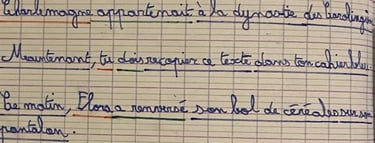 Charlemagne appartenait à la dynastie des Carolingiens
Maintenant, tu dois recopier ce texte dans ton cahier bleu.
Ce matin, Flora a renversé son bol de céréales sur son
pantalon.